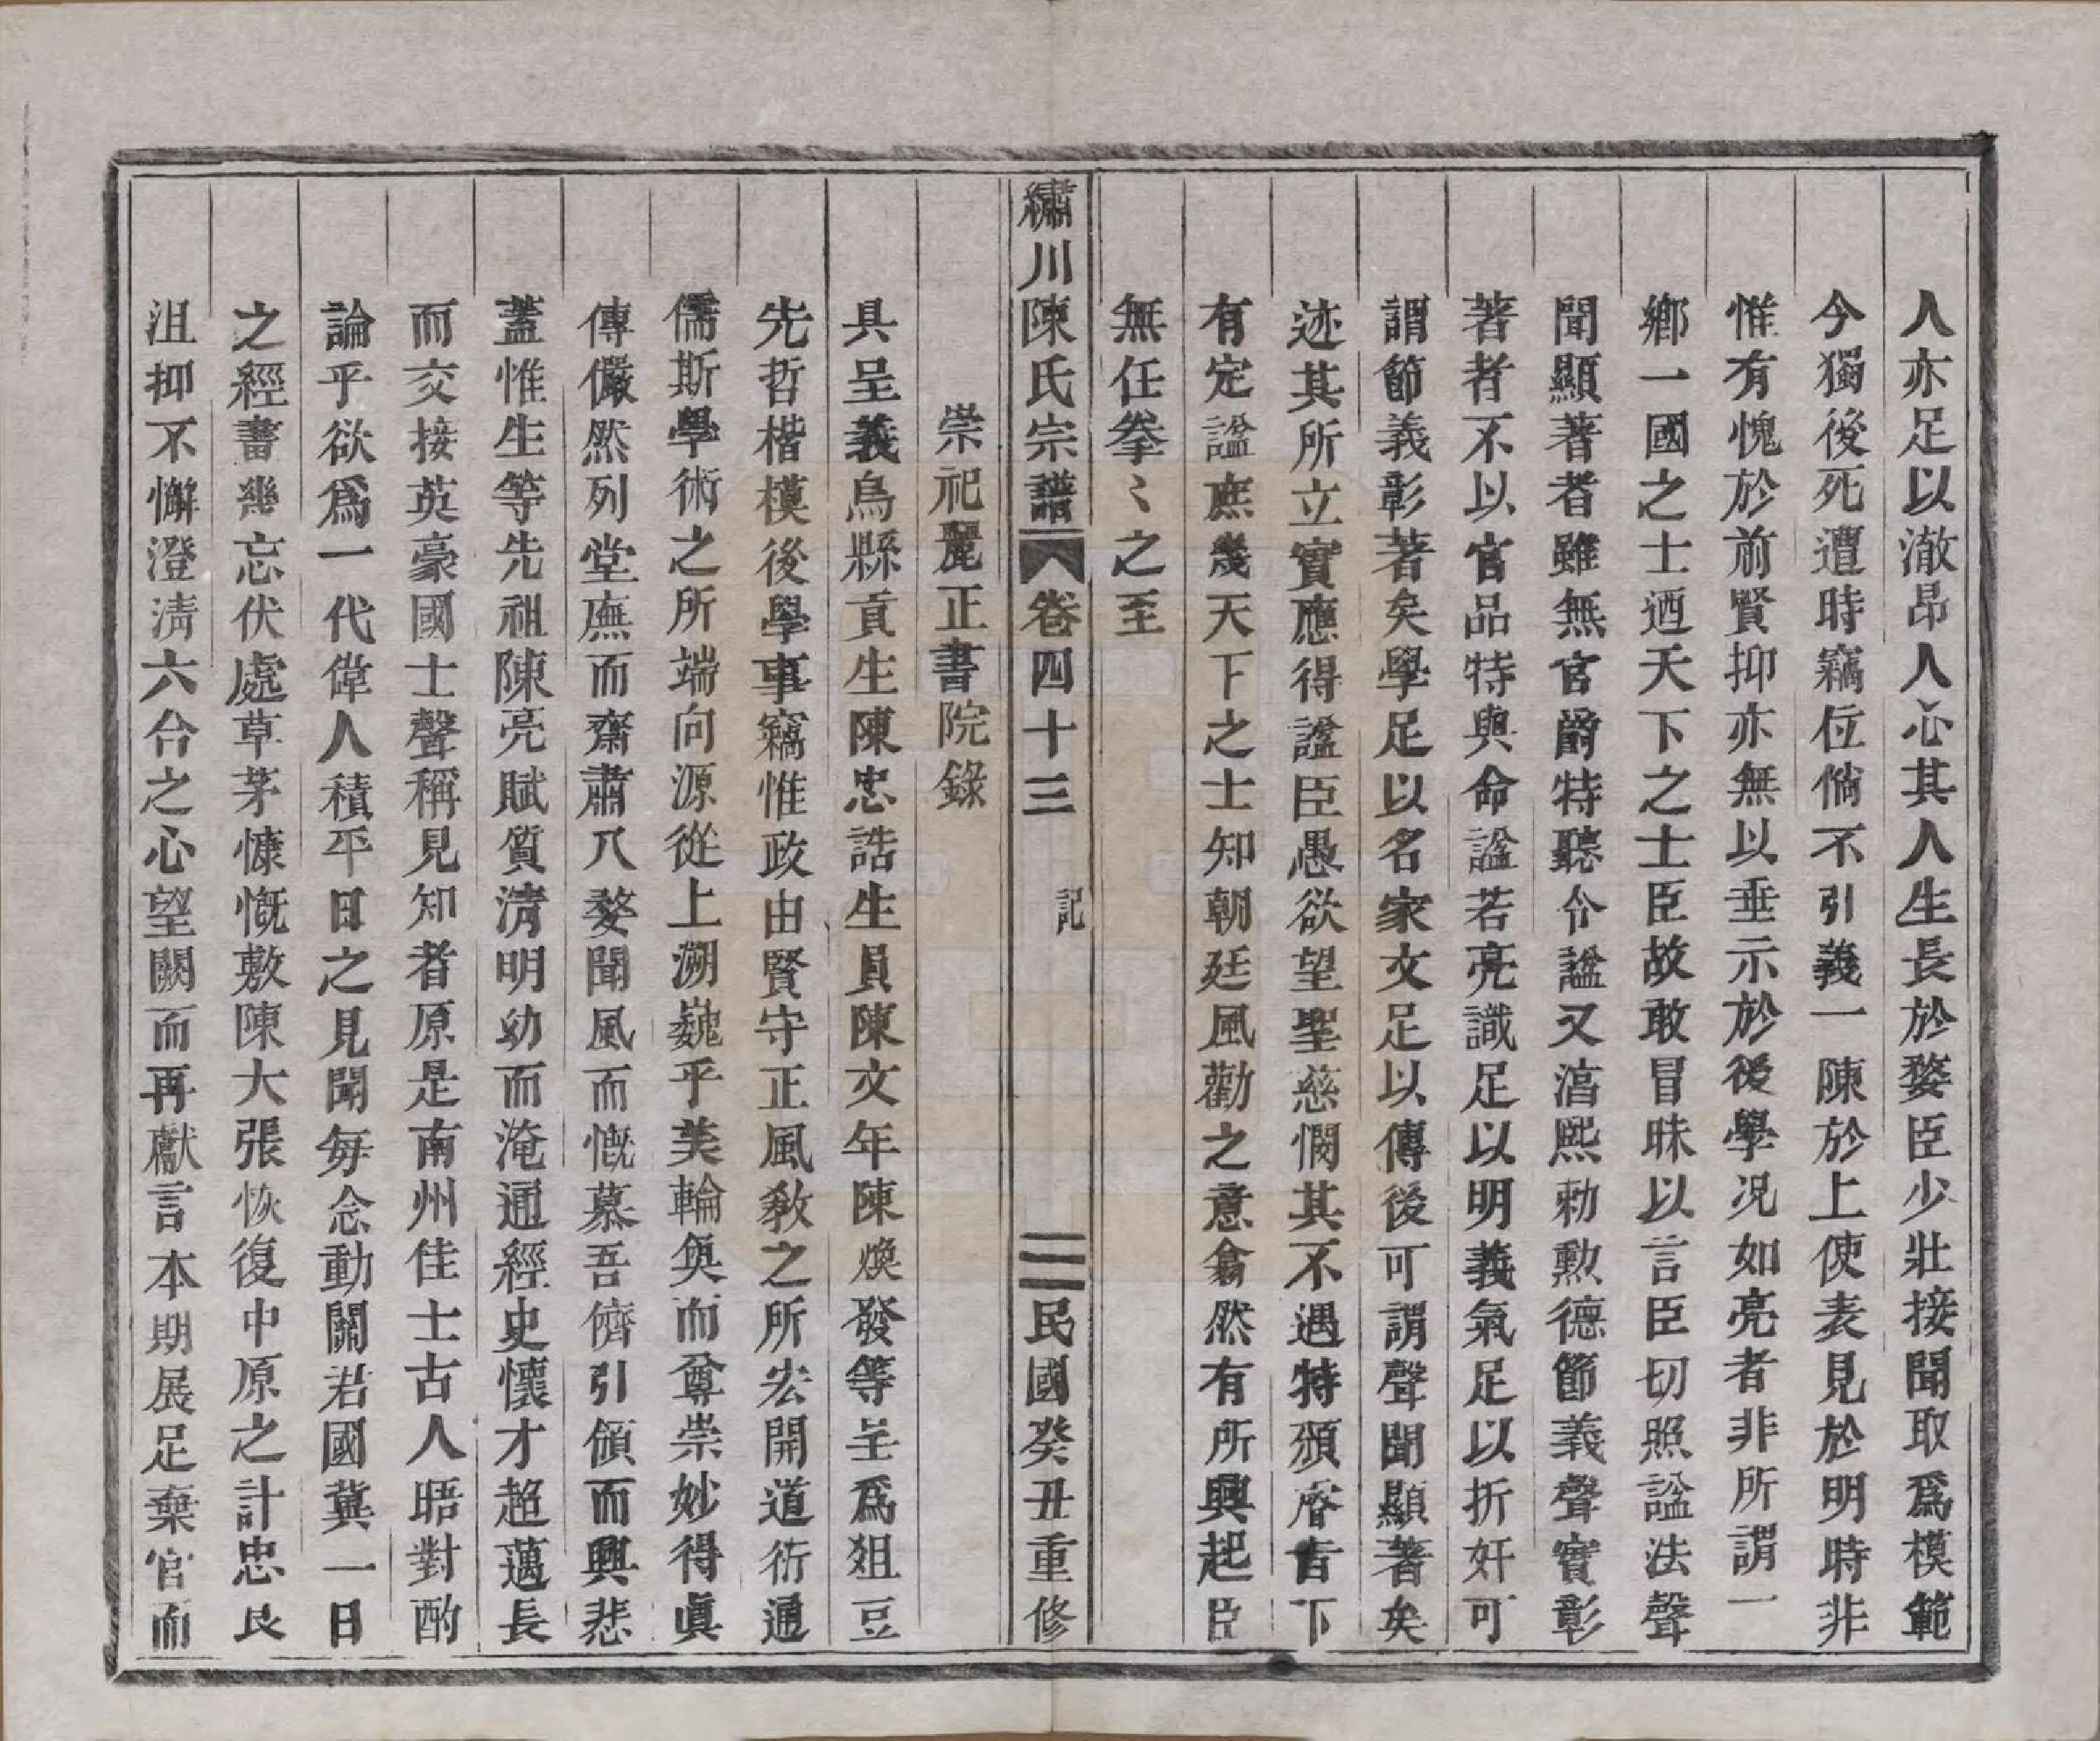 人亦足以澈昂人心其人生長於婺臣少壯接聞取爲模範
今獨後死遭時竊位倘不引義一陳於上使表見於明時非
惟有愧於前賢抑亦無以垂示於後學况如亮者非所謂一
鄉一國之士迺天下之士臣故敢冒昧以言臣切照諡法聲
聞顯著者雖無官爵特聽令諡又湻熙勅勳德節義聲實彰
著者不以官品特與命諡若亮識足以明義氣足以折奸可
謂節義彰著矣學足以名家文足以傳後可謂聲聞顯著矣
迹其所立實應得諡臣愚欲望聖慈憫其不遇特頒睿旨下
有定諡庶幾天下之士知朝廷風勸之意翕然有所興起臣
無任拳〻之至
繡川陳氏宗譜 卷四十三 記 二 民國癸丑重修
崇祀麗正書院錄
具呈義烏縣貢生陳忠誥生員陳文年陳煥發等呈爲俎豆
先哲楷模後學事竊惟政由賢守正風敎之所宏開道衍通
儒斯學術之所端向源從上溯巍乎美輪奐而尊崇妙得眞
傳儼然列堂廡而齋肅八婺聞風而慨慕吾儕引領而興悲
蓋惟生等先祖陳亮賦質淸明幼而淹通經史懷才超邁長
而交接英豪國士聲稱見知者原是南州佳士古人晤對酌
論乎欲爲一代偉人積平日之見聞每念動關君國冀一日
之經書幾忘伏處草茅慷慨敷陳大張恢復中原之計忠良
沮抑不懈澄淸六合之心望闕而再獻言本期展足棄官而